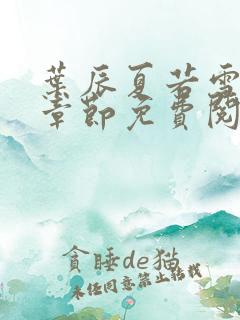 葉辰夏若雪
章節免費閱
貪睡de猫
未经同意禁止转载